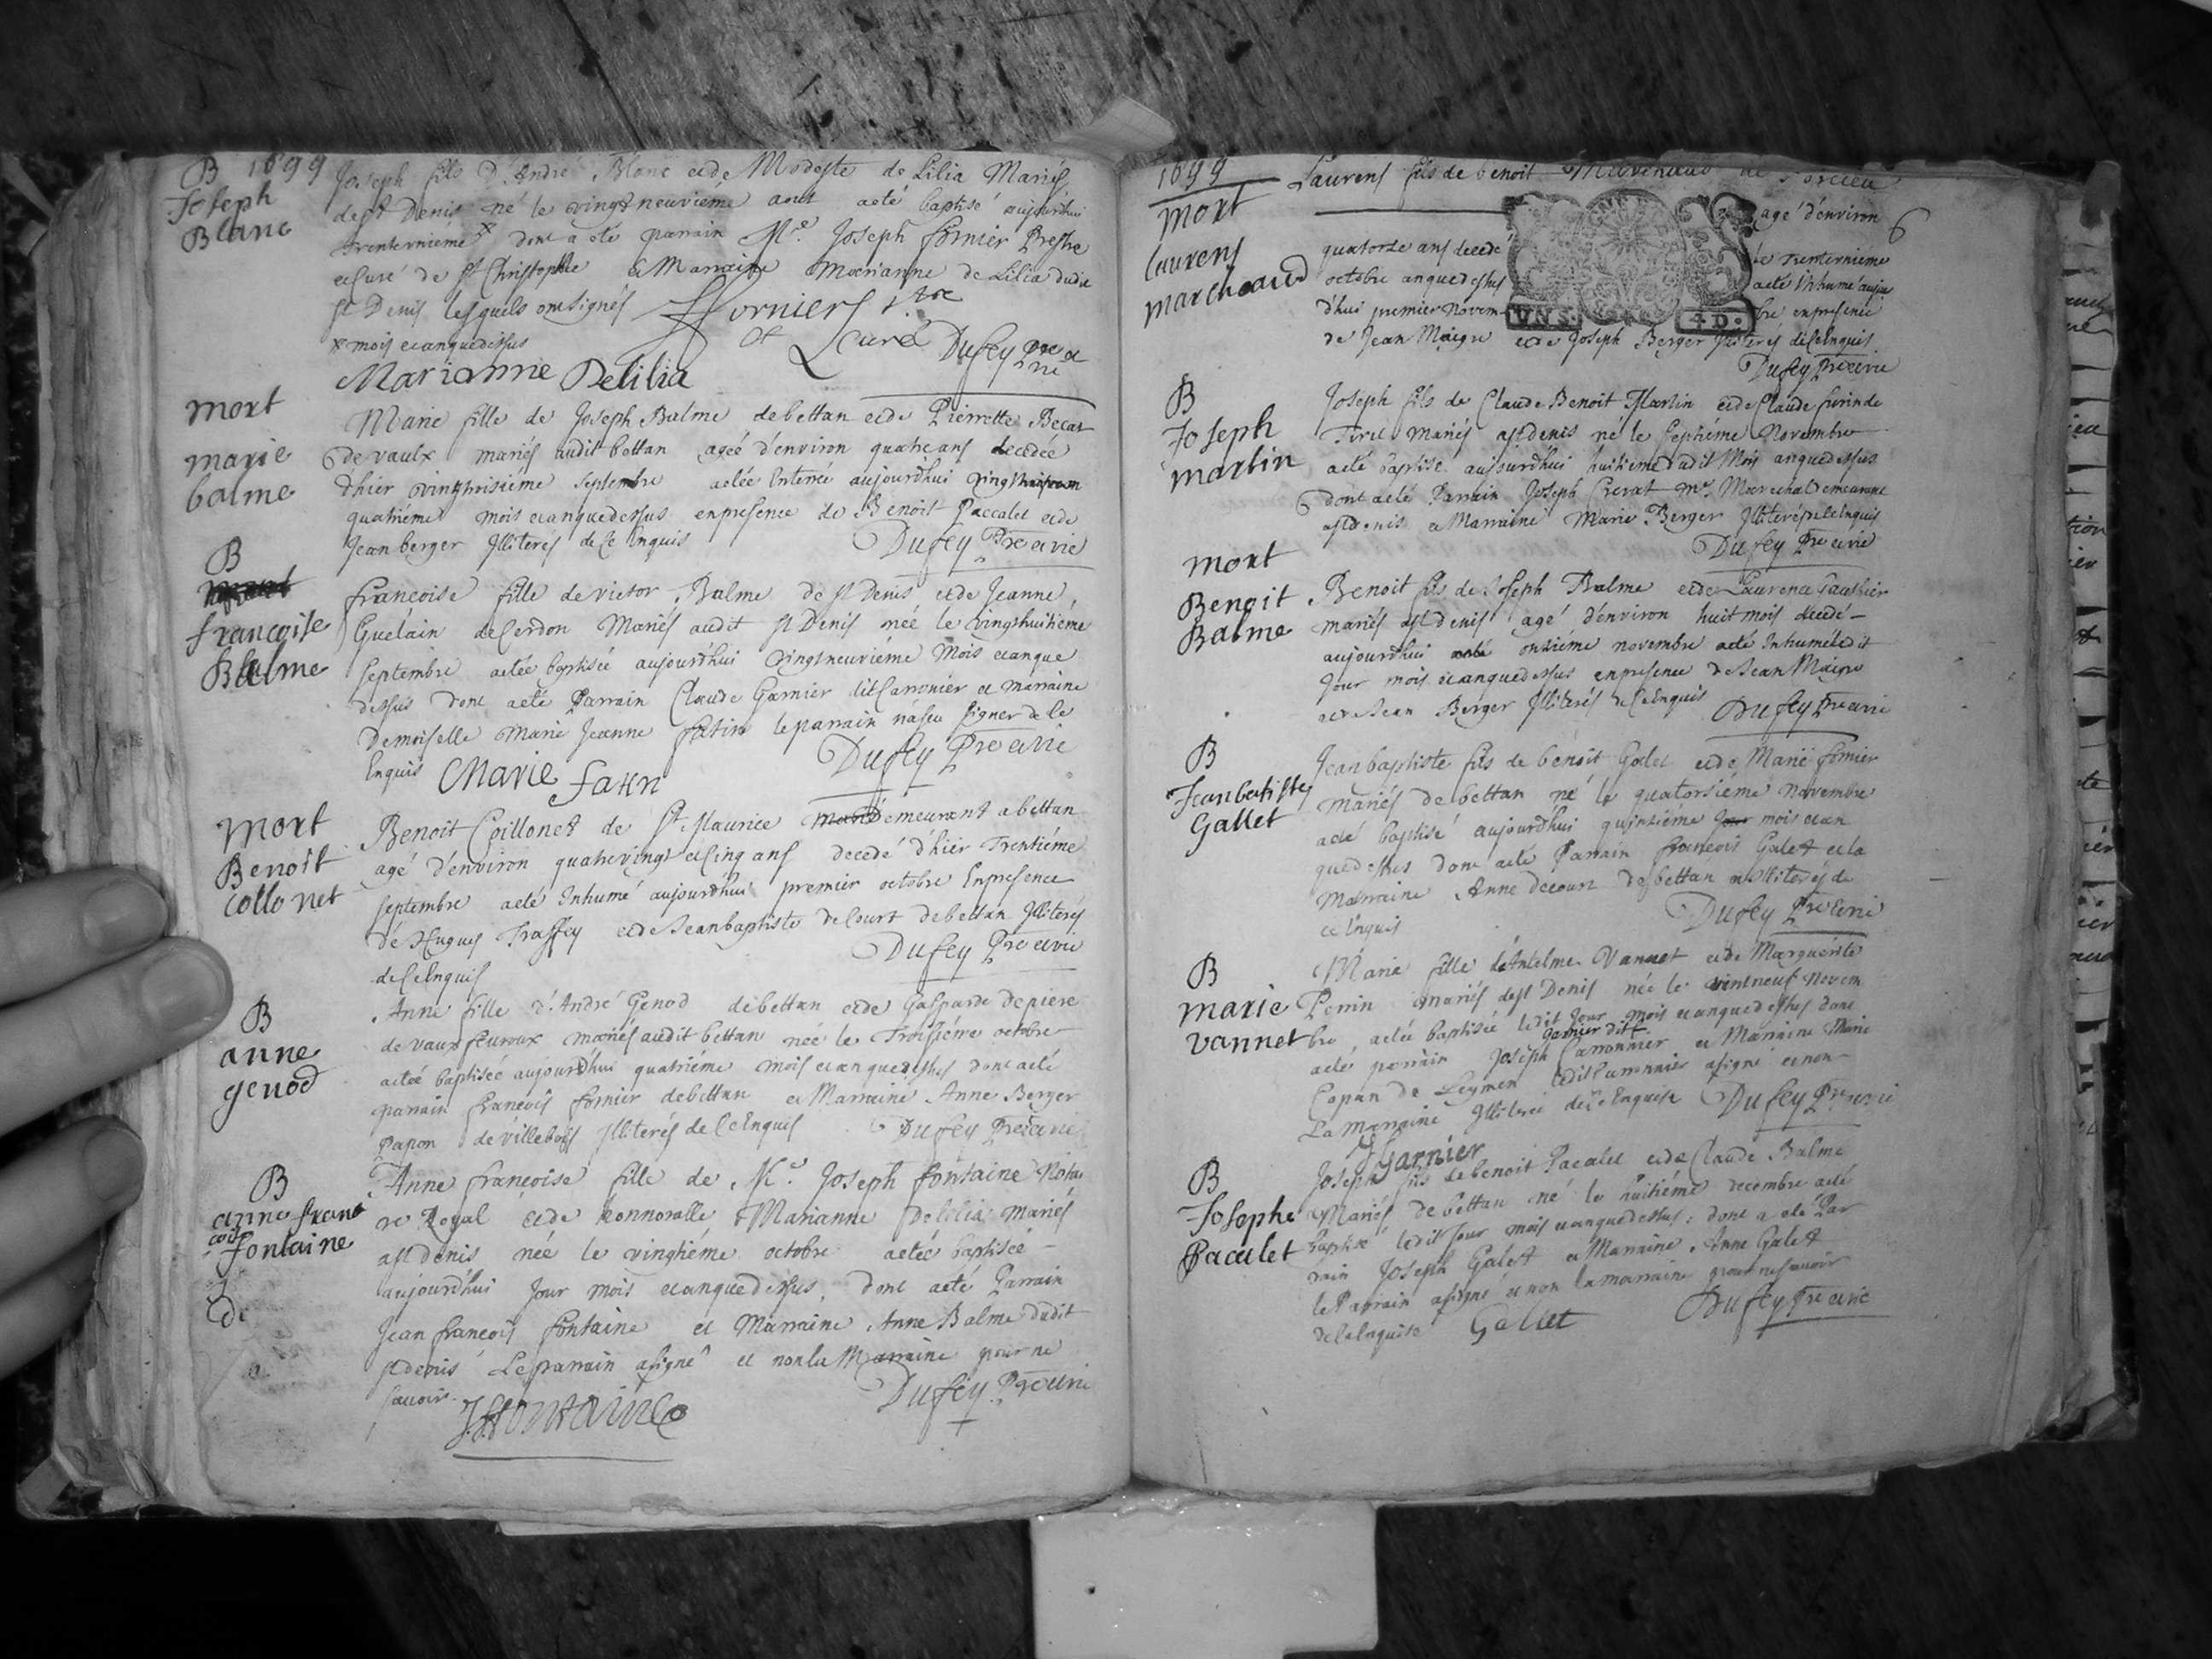 B 1699
Joseph
Blanc
Joseph fils d'André Blanc et de Modeste de Lilia Mariés
de st Denis né le vingt neuvième aout a eté baptisé aujourdhui
trenteunième x dont a eté parrain Mre. Joseph fornier Prestre
et Curé de st Christophle et Marraine Marianne de Lilia dudit
st Denis lesquels ont signés
x mois et an que dessus
fforniers ptre
et Curé
Dufey Pre et
Marianne Delilia
mort
marie
balme
Marie fille de Joseph Balme de bettan et de Pierrette Becat
de vaulx mariés audit bettan agée d'environ quatre ans decedée
d'hier vingt troisième septembre a etée enterrée aujourdhui
quatrième mois et an que dessus en presence de Benoit Paccalet et de
Jean berger Illiterés de ce enquis Dufey Pre et vic
B
francoise
Balme
francoise fille de victor Balme de st Denis et de Jeanne
Guelain de Cerdon Mariés audit st Denis née le vingt huitième
septembre a etée baptisée aujourdhui vingt neuvième Mois et an que
dessus dont a eté Parrain Claude Garnier dit Carronier et marraine
Demoiselle Marie Jeanne fatin le parrain n'a seu signer de ce
Enquis Marie fatin Dufey Pre et vic
mort
Benoit
collonet
Benoit Coillonet de st Maurice demeurant a bettan
agé d'environ quatre vingt et cinq ans decedé d'hier Trentième
septembre a eté Inhumé aujourdhui premier octobre En presence
de Hugues Traffey et de Jean baptiste de Court de bettan Illiterés
de Ce Enquis Dufey Pre et vic
B
anne
genod
Anne fille d'André Genod de bettan et de Gasparde de piere
de vaux feuroux mariés audit bettan née le Troisième octobre
a etée baptisée aujourdhui quatrième mois et an que dessus dont a eté
parrain francois fornier de bettan et Marraine Anne Berger
Papon de villebois Illiterés de Ce Enquis Dufey Pre et vic
B
anne franc
coise
fontaine
Anne francoise fille de Me. Joseph fontaine Notai
re Royal et de honnorable Marianne Delilia mariés
a st denis née le vingtième octobre a etée baptisée
aujourdhui Jour mois et an que dessus, dont a eté Parrain
Jean francois fontaine et Marraine Anne Balme dudit
st denis Le parrain a signé et non la Marraine pour ne
scavoir. J.ffontaine Dufey Pre et vic
1699
mort
laurens
marchand
6
Laurens fils de benoit
agé d'environ
quatorze ans decedé le trenteunième
octobre an que dessus a eté Inhumé aujour
d'hui premier Novembre en presence
de Jean Maigre et de Joseph Berger Illiterés de Ce Enquis
VN S. 4 D.
Dufey Pre et vic
B
Joseph
martin
Joseph fils de Claude Benoit Martin et de Claude
mariés a st denis né le septième Novembre
a eté baptisé aujourdhui huitième dudit Mois an que dessus
dont a eté Parrain Joseph Cherat me. Marechal demeurant
a st denis et Marraine Marie Berger Illiterés de Ce Enquis
Dufey Pre et vic
mort
Benoit
Balme
Benoit fils de Joseph Balme et de Laurence Gauthier
mariés a st denis agé d'environ huit mois decedé
aujourdhui onzième novembre a eté Inhumé le dit
Jour mois et an que dessus en presence de Jean Maigre
et de Jean Berger Illiterés de Ce Enquis Dufey Pre et vic
B
Jean batiste
Gallet
Jean baptiste fils de benoit Galet et de Marie fornier
mariés de bettan né le quatorsième novembre
a eté baptisé aujourdhui quinzième mois et an
que dessus dont a eté Parrain francois Galet et la
Marraine Anne decourt de bettan Illiterés de
ce Enquis Dufey Pre et vic
B
marie
vannet
Marie fille d'Antelme Vannet et de Marguerite
Perrin mariés de st Denis née le vint neuf Novem
bre, a etée baptisée ledit Jour mois et an que dessus dont
a eté parrain Joseph garnier dit Carronnier et Marraine Marie
Copan de Leymen ledit Carronnier a signé et non
La Marraine Illiterée de ce Enquise Dufey Pre et vic
J Garnier
B
Josephe
Pacalet
Joseph fils de benoit Pacalet et de Claude Balme
Mariés de bettan né le huitième decembre a eté
baptisé ledit Jour mois et an que dessus: dont a eté Par
rain Joseph Galet et Marraine Anne Galet
le Parrain a signé et non la marraine pour ne scavoir
de ce Enquise Gallet Dufey Pre et vic